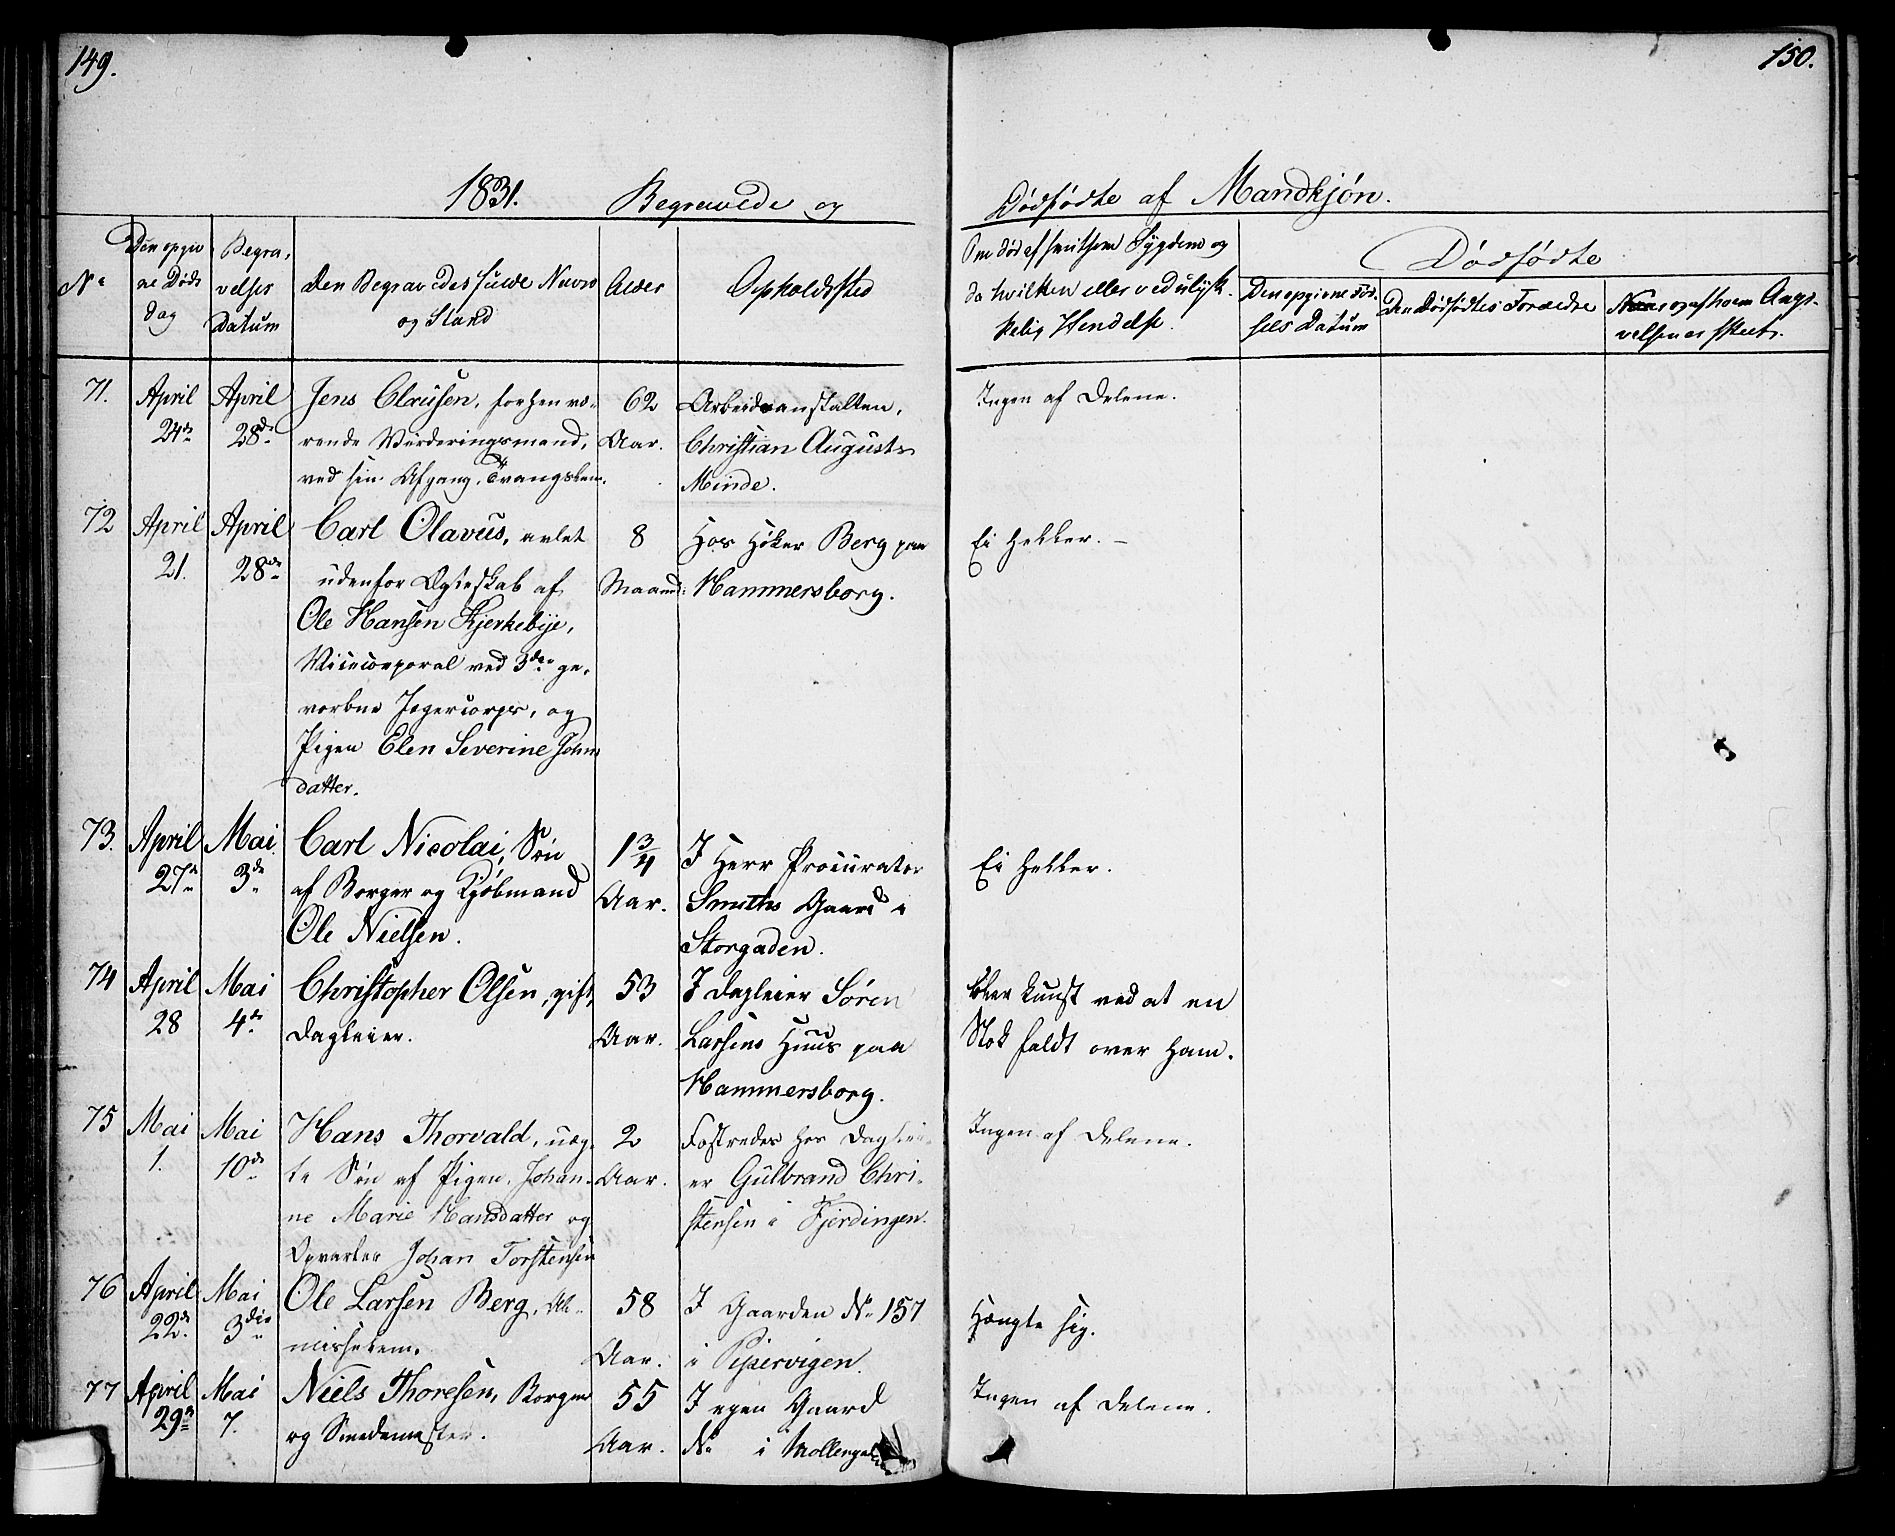 149.
150.
1831. Begravede og
Dødfødte af Mandkjøn.
No
Den opgiv
ne Døds
dag
Begra,
velses
Datum
Den Begravedes fulde Navn
og Stand
Alder
Opholdsted
Om død af smitsom Sygdom og
da hvilken eller ved ulyk-
kelig Hendelse.
Dødfødte
Den opgivne Fød-
sels Datum
Den Dødfødtes Forældre
Naar og af hvem Angi-
velsen er skeet.
71.
April
24de
April
28de
Jens Clausen, forhenvæ-
rende Vurderingsmand,
ved sin Afgang, Tvangslem.
62
Aar.
Arbeidsanstalten,
Christian Augusts
Minde.
Ingen af Delene.
72
April
21.
April
28de
Carl Olavus, avlet
udenfor Ægteskab af
Ole Hansen Kjerkebye,
Vicecorporal ved 3die ge-
vorbne Jægercorps, og
Pigen Elen Severine Johns
datter.
8
Maaned:
Hos Høker Berg paa
Hammersborg.
Ei heller. –
73.
April
27de
Mai
3de
Carl Nicolai, Søn
af Borger og Kjøbmand
Ole Nielsen.
1 3/4
Aar.
I Herr Procurator
Smiths Gaard i
Storgaden.
Ei heller.
74
April
28
Mai
4de
Christopher Olsen, gift,
Dagleier.
53
Aar.
I Dagleier Sören
Larsens Huus paa
Hammersborg.
qvast ved at en
Stok faldt over ham.
75
Mai
1.
Mai
10de
Hans Thorvald, uæg-
te Søn af Pigen, Johan-
ne Marie Hansdatter og
Opvarter Johan Torstensen
2
Aar.
Fostredes hos Daglei-
er Gulbrand Chri-
stensen i Fjerdingen.
Ingen af Delene.
76
April
22de
Mai
3die
Ole Larsen Berg, Al-
misselem.
58
Aar.
I Gaarden No 157
i Pipervigen.
Hængte sig.
77
April
29de
Mai
7.
Niels Thoresen, Borger
og Smedemester.
55
Aar.
I egen Gaard
No i
Ingen af Delene.